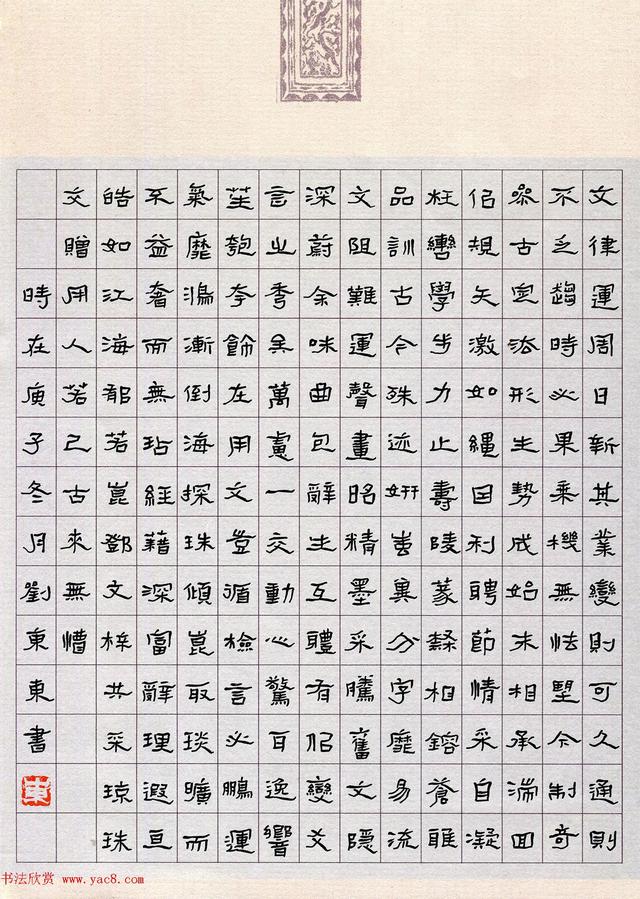 文律運周日新其業變則可久通則
不乏趨時必果乘機無怯望今制奇
參古定法形生勢成始末相承湍回
似規矢激如繩因利騁節情采自凝
枉轡學步力止壽陵篆隸相鎔蒼雅
品訓古今殊迹妍媸異分字靡易流
文阻難運聲畫昭精墨采騰奮文隱
深蔚余味曲包辭生互體有似變爻
言之秀矣萬慮一交動心驚耳逸響
笙匏夸飾在用文豈循檢言必鵬運
氣靡鴻漸倒海探珠傾崑取琰曠而
不益奢而無玷經籍深富辭理遐亘
皓如江海郁若崑鄧文梓共采瓊珠
交贈用人若己古來無懵
時在庚子冬月劉東東書
東
书法欣赏 www.yac8.com